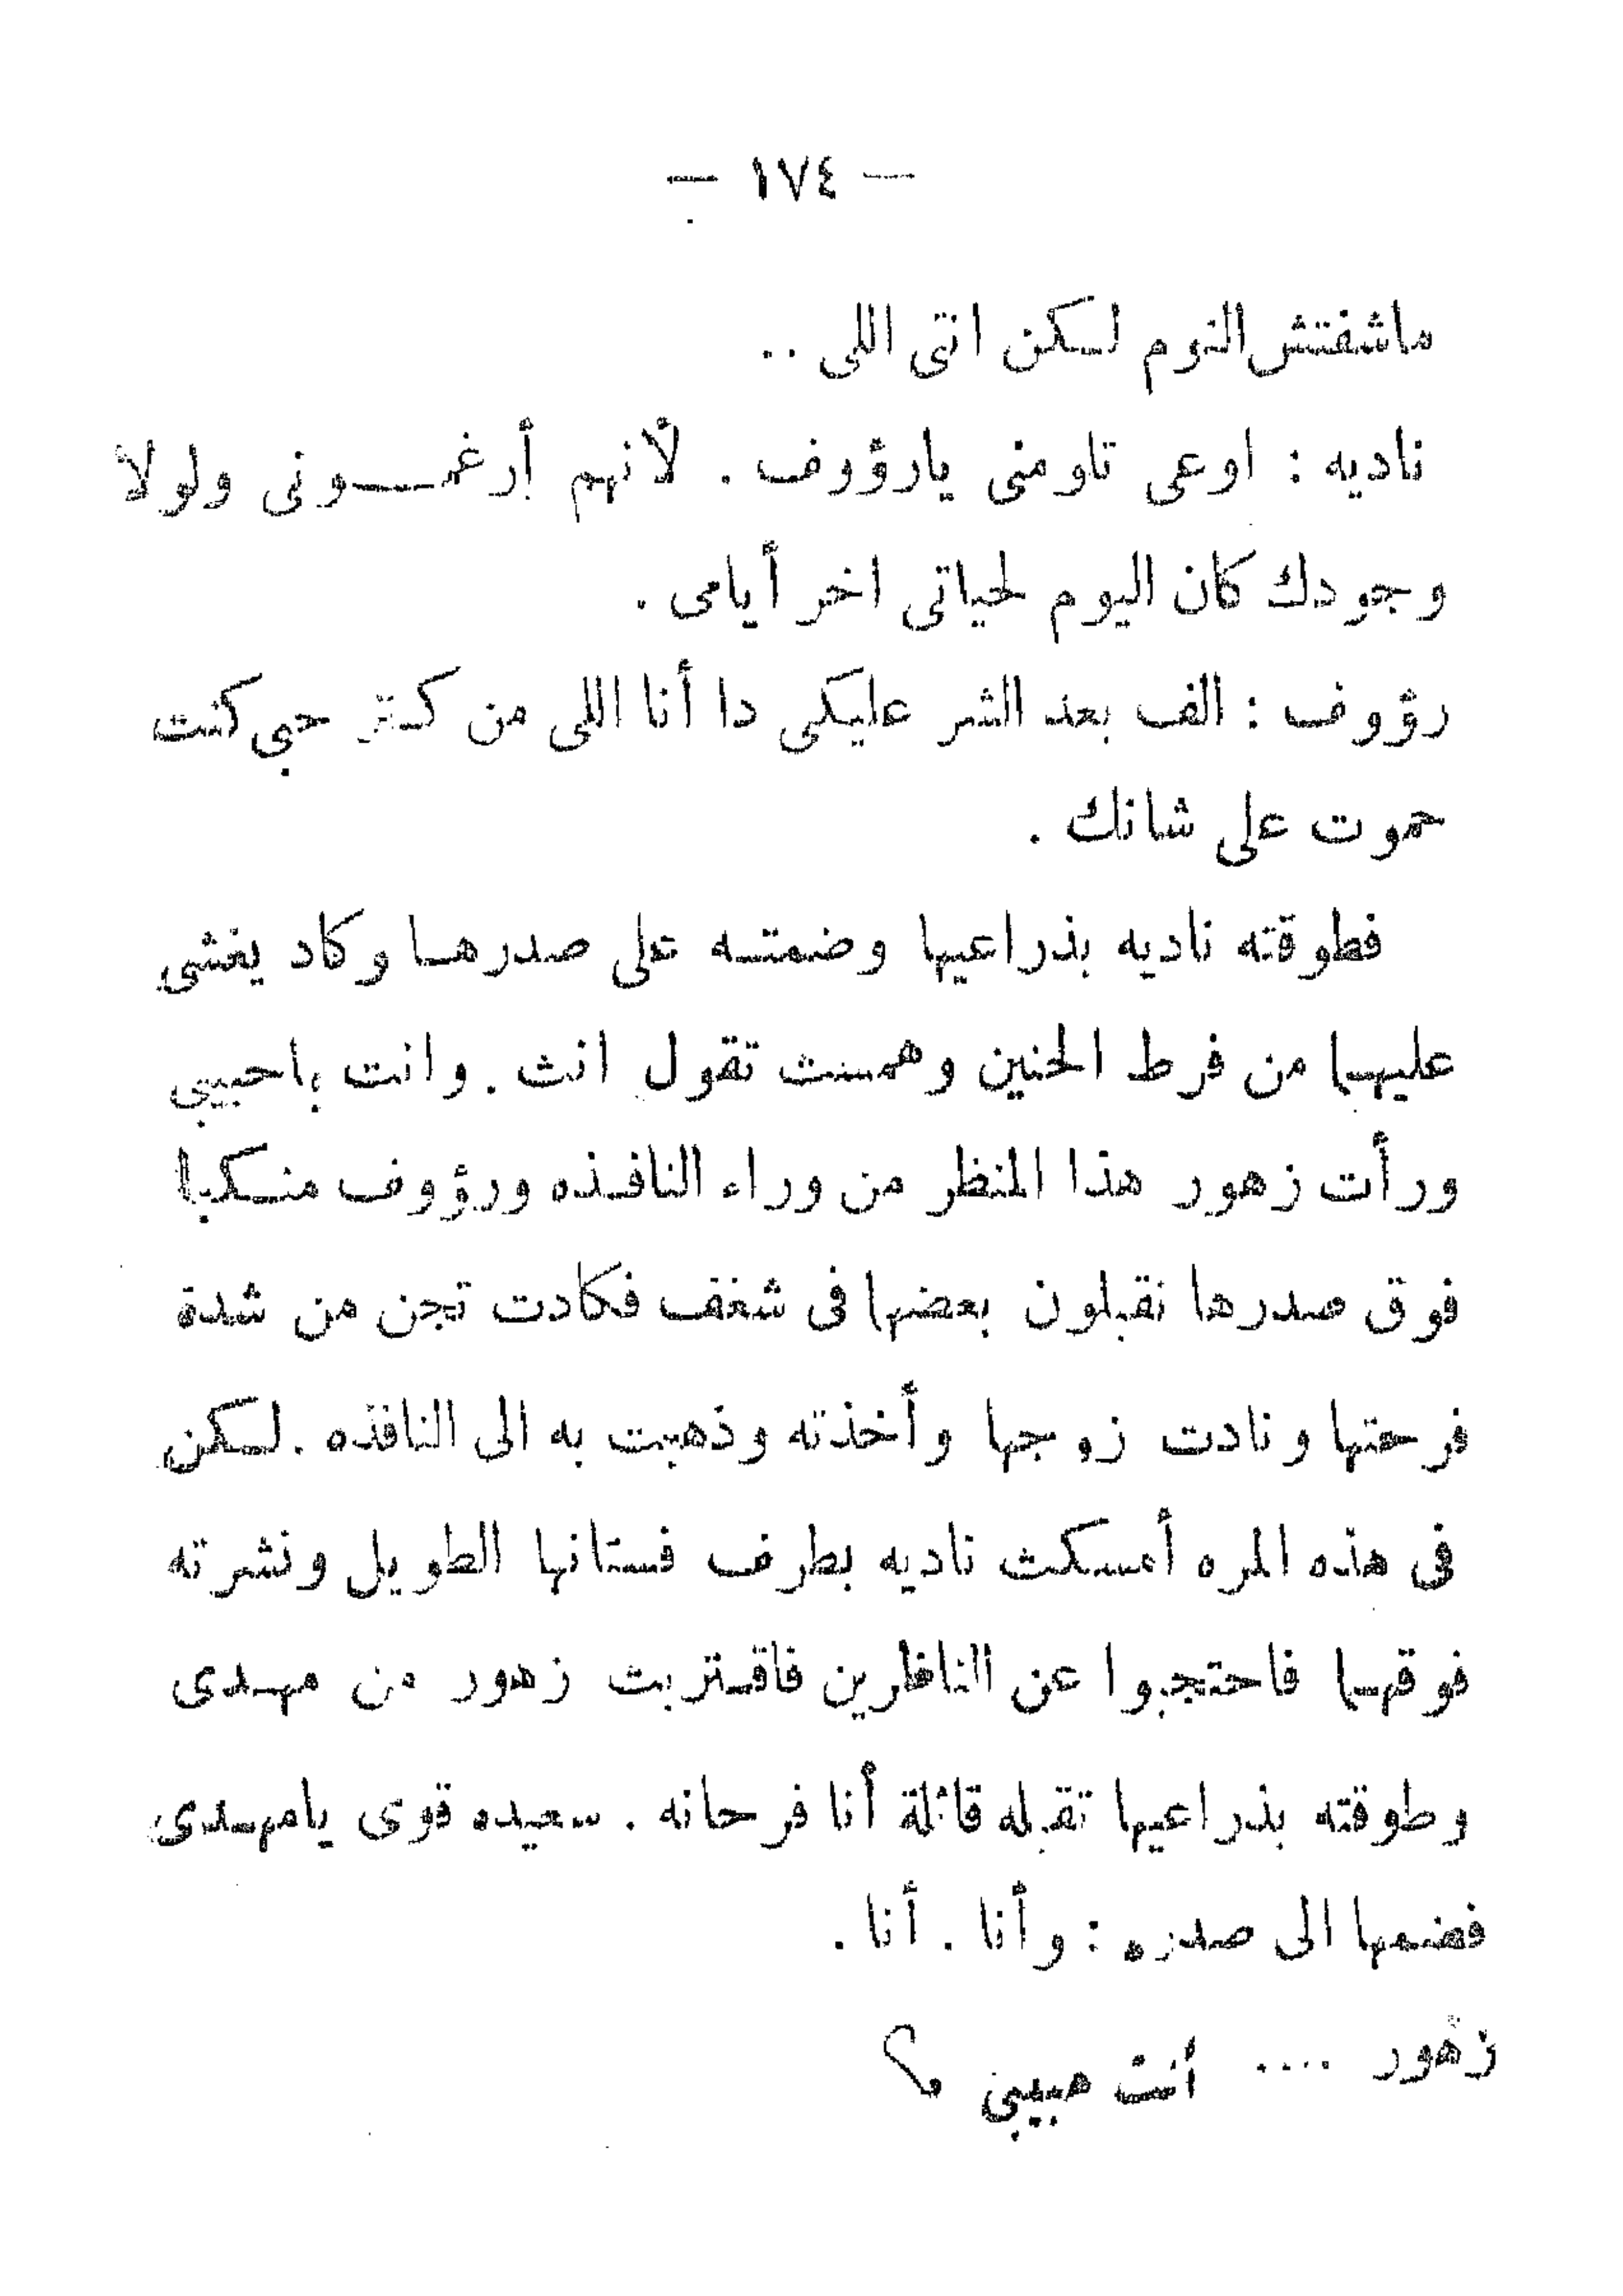 — ١٧٤ —
ماشفتش النوم لكن انتى اللى ..
ناديه : اوعى تلومنى يارؤوف . لأنهم أرغمونى ولولا
وجودك كان اليوم لحياتى اخر أيامى .
رؤوف : الف بعد الشر عليكى دا أنا اللى من كتر حبى كنت
حموت على شانك .
فطوقته ناديه بذراعيها وضمته على صدرها وكاد يغشى
عليهما من فرط الحنين وهمست تقول انت . وانت ياحبيبى
ورأت زهور هذا المنظر من وراء النافذه ورؤوف منكبا
فوق صدرها نقبلون بعضها فى شغف فكادت تجن من شدة
فرحتها ونادت زوجها وأخذته وذهبت به الى النافذه . لكن
فى هذه المره أمسكت ناديه بطرف فستانها الطويل ونشرته
فوقهما فاحتجبوا عن الناظرين فاقتربت زهور من مهدى
وطوقته بذراعيها تقبله قائلة أنا فرحانه . سعيده قوى يامهدى
فضمها الى صدره : وأنا . أنا .
زهور .... أنت حبيبى ؟